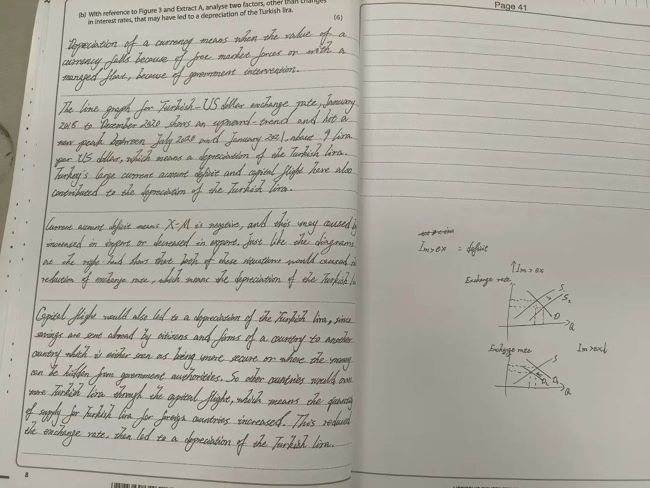 (b) With reference to Figure 3 and Extract A, analyse two factors, other than changes
in interest rates, that may have led to a depreciation of the Turkish lira.
(6)
Depreciation of a currency means when the value of a
currency falls because of free market forces or with a
managed float, because of government intervention.
The line graph for Turkish-US dollar exchange rate, January
2018 to December 2020, shows an upward-trend and hit a
new peak between July 2020 and January 2021, about 9 lira
per US dollar, which means a depreciation of the Turkish lira.
Turkey's large current account deficit and capital flight have also
contributed to the depreciation of the Turkish lira.
Current account deficit means X-M is negative, and this may caused
increased in import or decreased in export. Just like the diagrams
on the right had shows that both of these situations would caused
reduction of exchange rate, which means the depreciation of the Turkish
Capital flight would also led to a depreciation of the Turkish lira, since
savings are sent abroad by citizens and firms of a country to another
country which is either seen as being more secure or where the money
can be hidden from government authorities. So other countries would own
more Turkish lira through the capital flight, which means the quantity
of supply for Turkish lira for foreign countries increased. This reduced
the exchange rate, then led to a depreciation of the Turkish lira.
8
Page 41
Im > ex = deficit
↑Im > ex
Exchange rate
S
S₂
D
Q
Exchange rate
Im > ex↓
S
D
Q